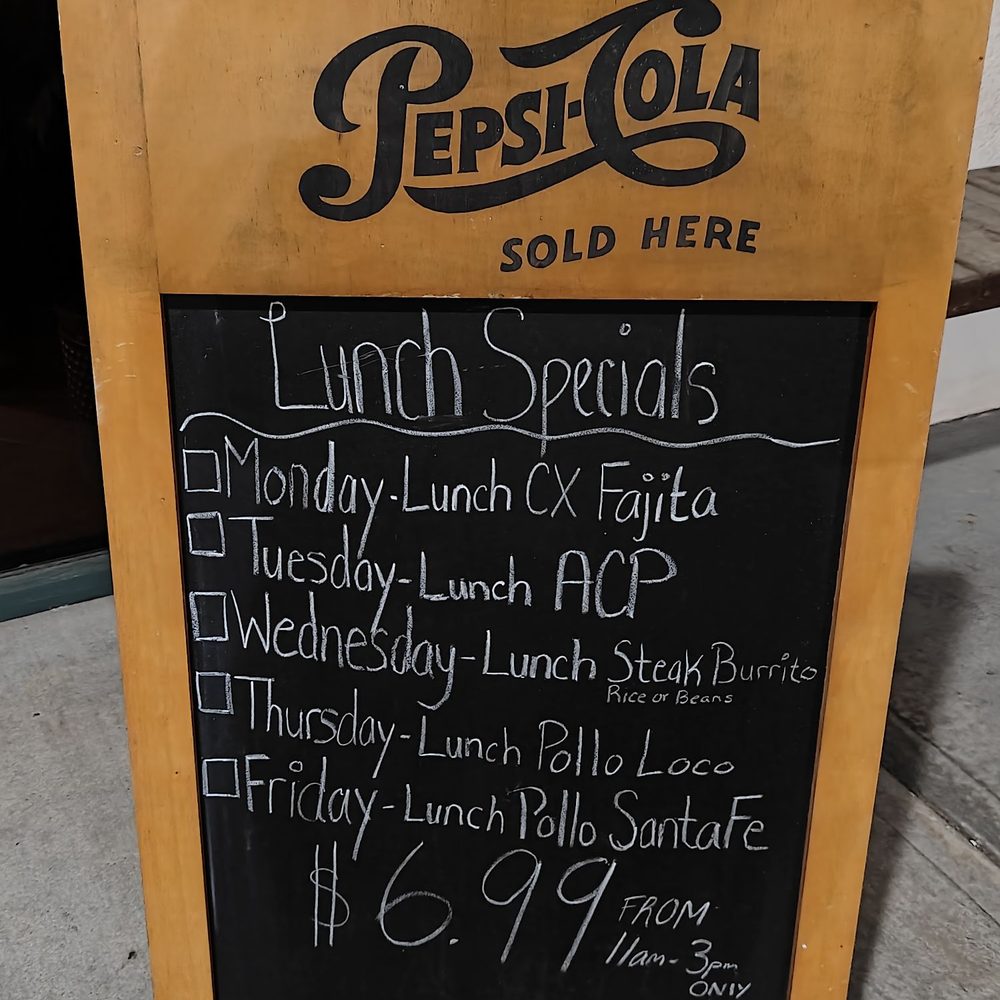 PEPSI-COLA
SOLD HERE
Lunch Specials
Monday-Lunch CX Fajita
Tuesday-Lunch ACP
Wednesday-Lunch Steak Burrito
Rice or Beans
Thursday-Lunch Pollo Loco
Friday-Lunch Pollo SantaFe
$6.99 FROM
11am-3pm
ONLY